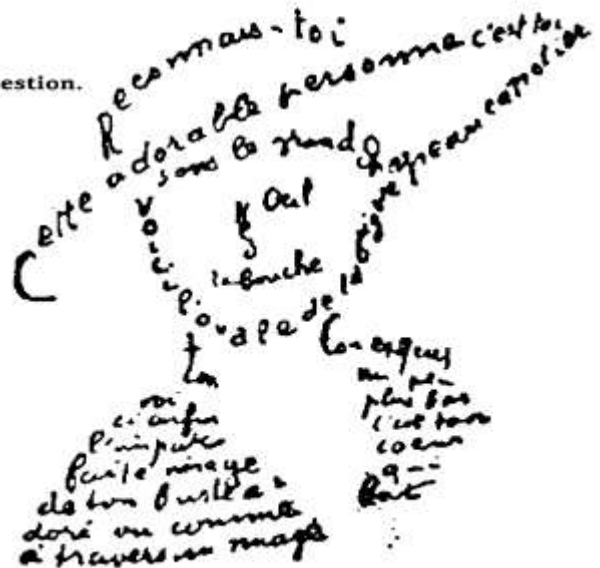 estion.
Reconnais-toi
Cette adorable personne c'est toi
sous le grand chapeau canotier
Oeil
Nez
la bouche
Voici l'ovale de ta figure
ton
Cou exquis
voi
ci enfin
l'impar
faite image
de ton buste a
doré vu comme
à travers un nuage
un peu
plus bas
c'est ton
coeur
qui
bat